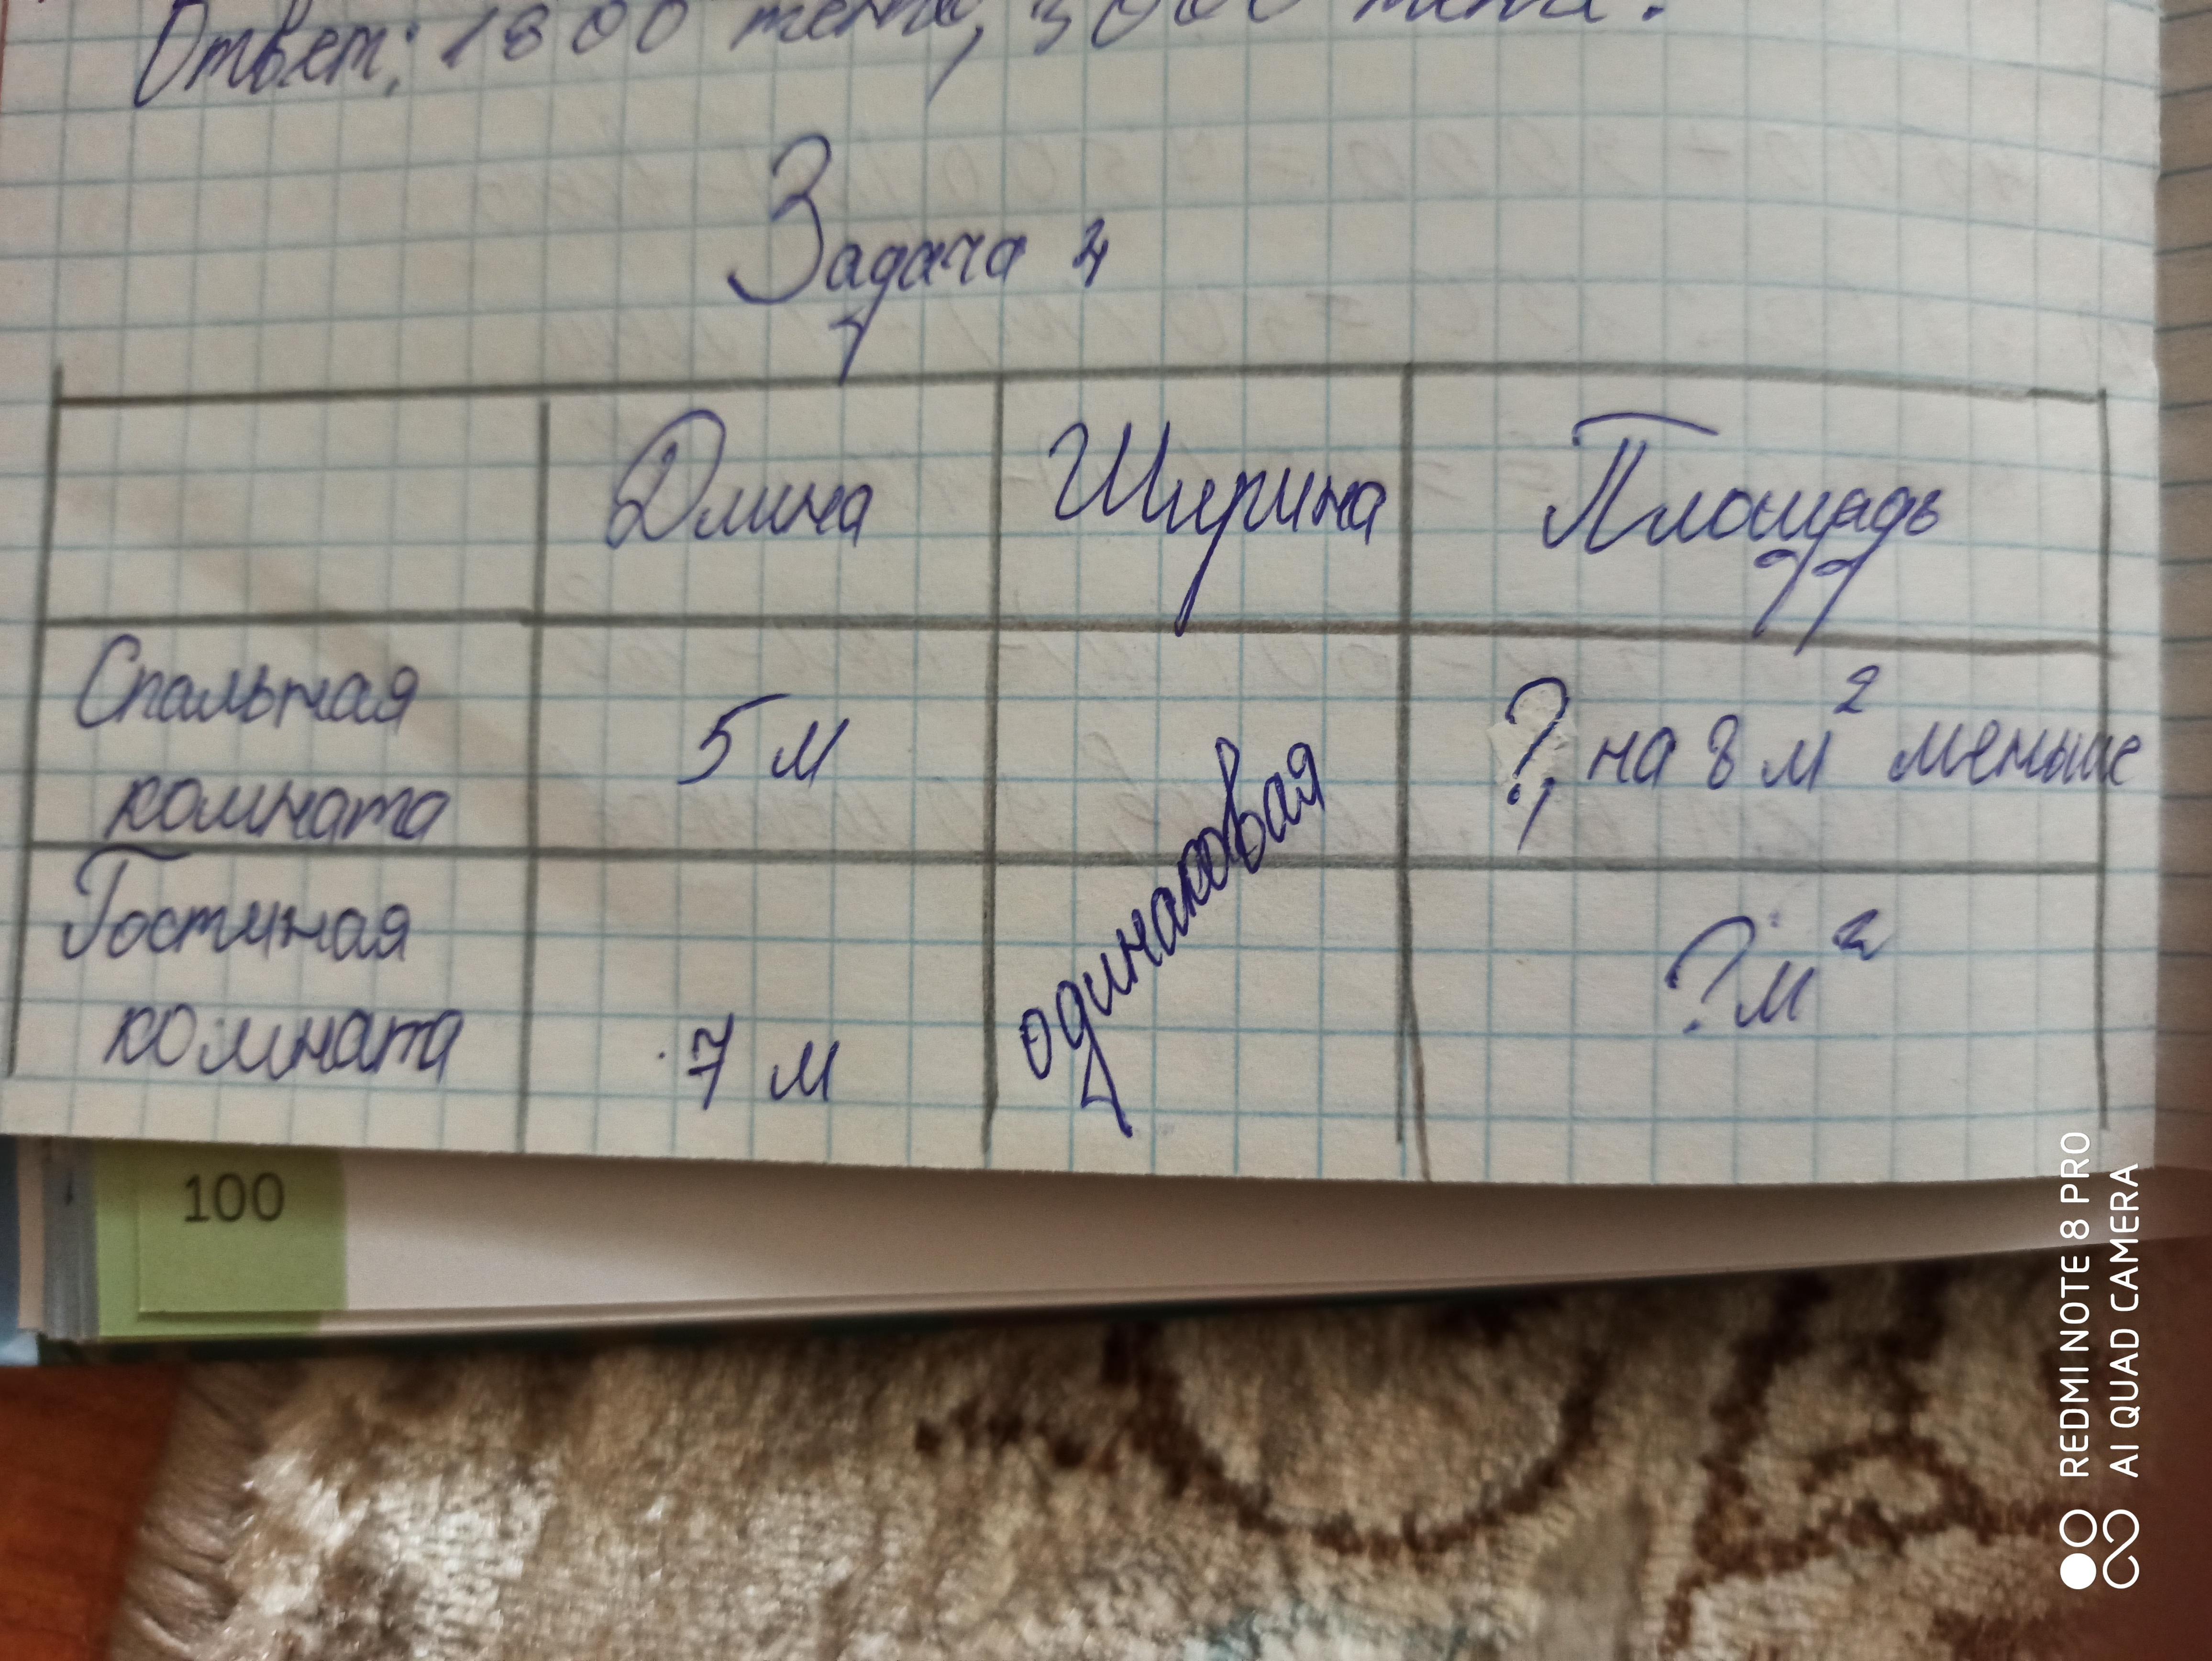 Ответ: 1800 тенге, 3000 тенге.
Задача 4
Длина Ширина Площадь
Спальная комната 5 м ?, на 8 м² меньше
одинаковая
Гостиная комната 7 м ? м²
100
REDMI NOTE 8 PRO
AI QUAD CAMERA